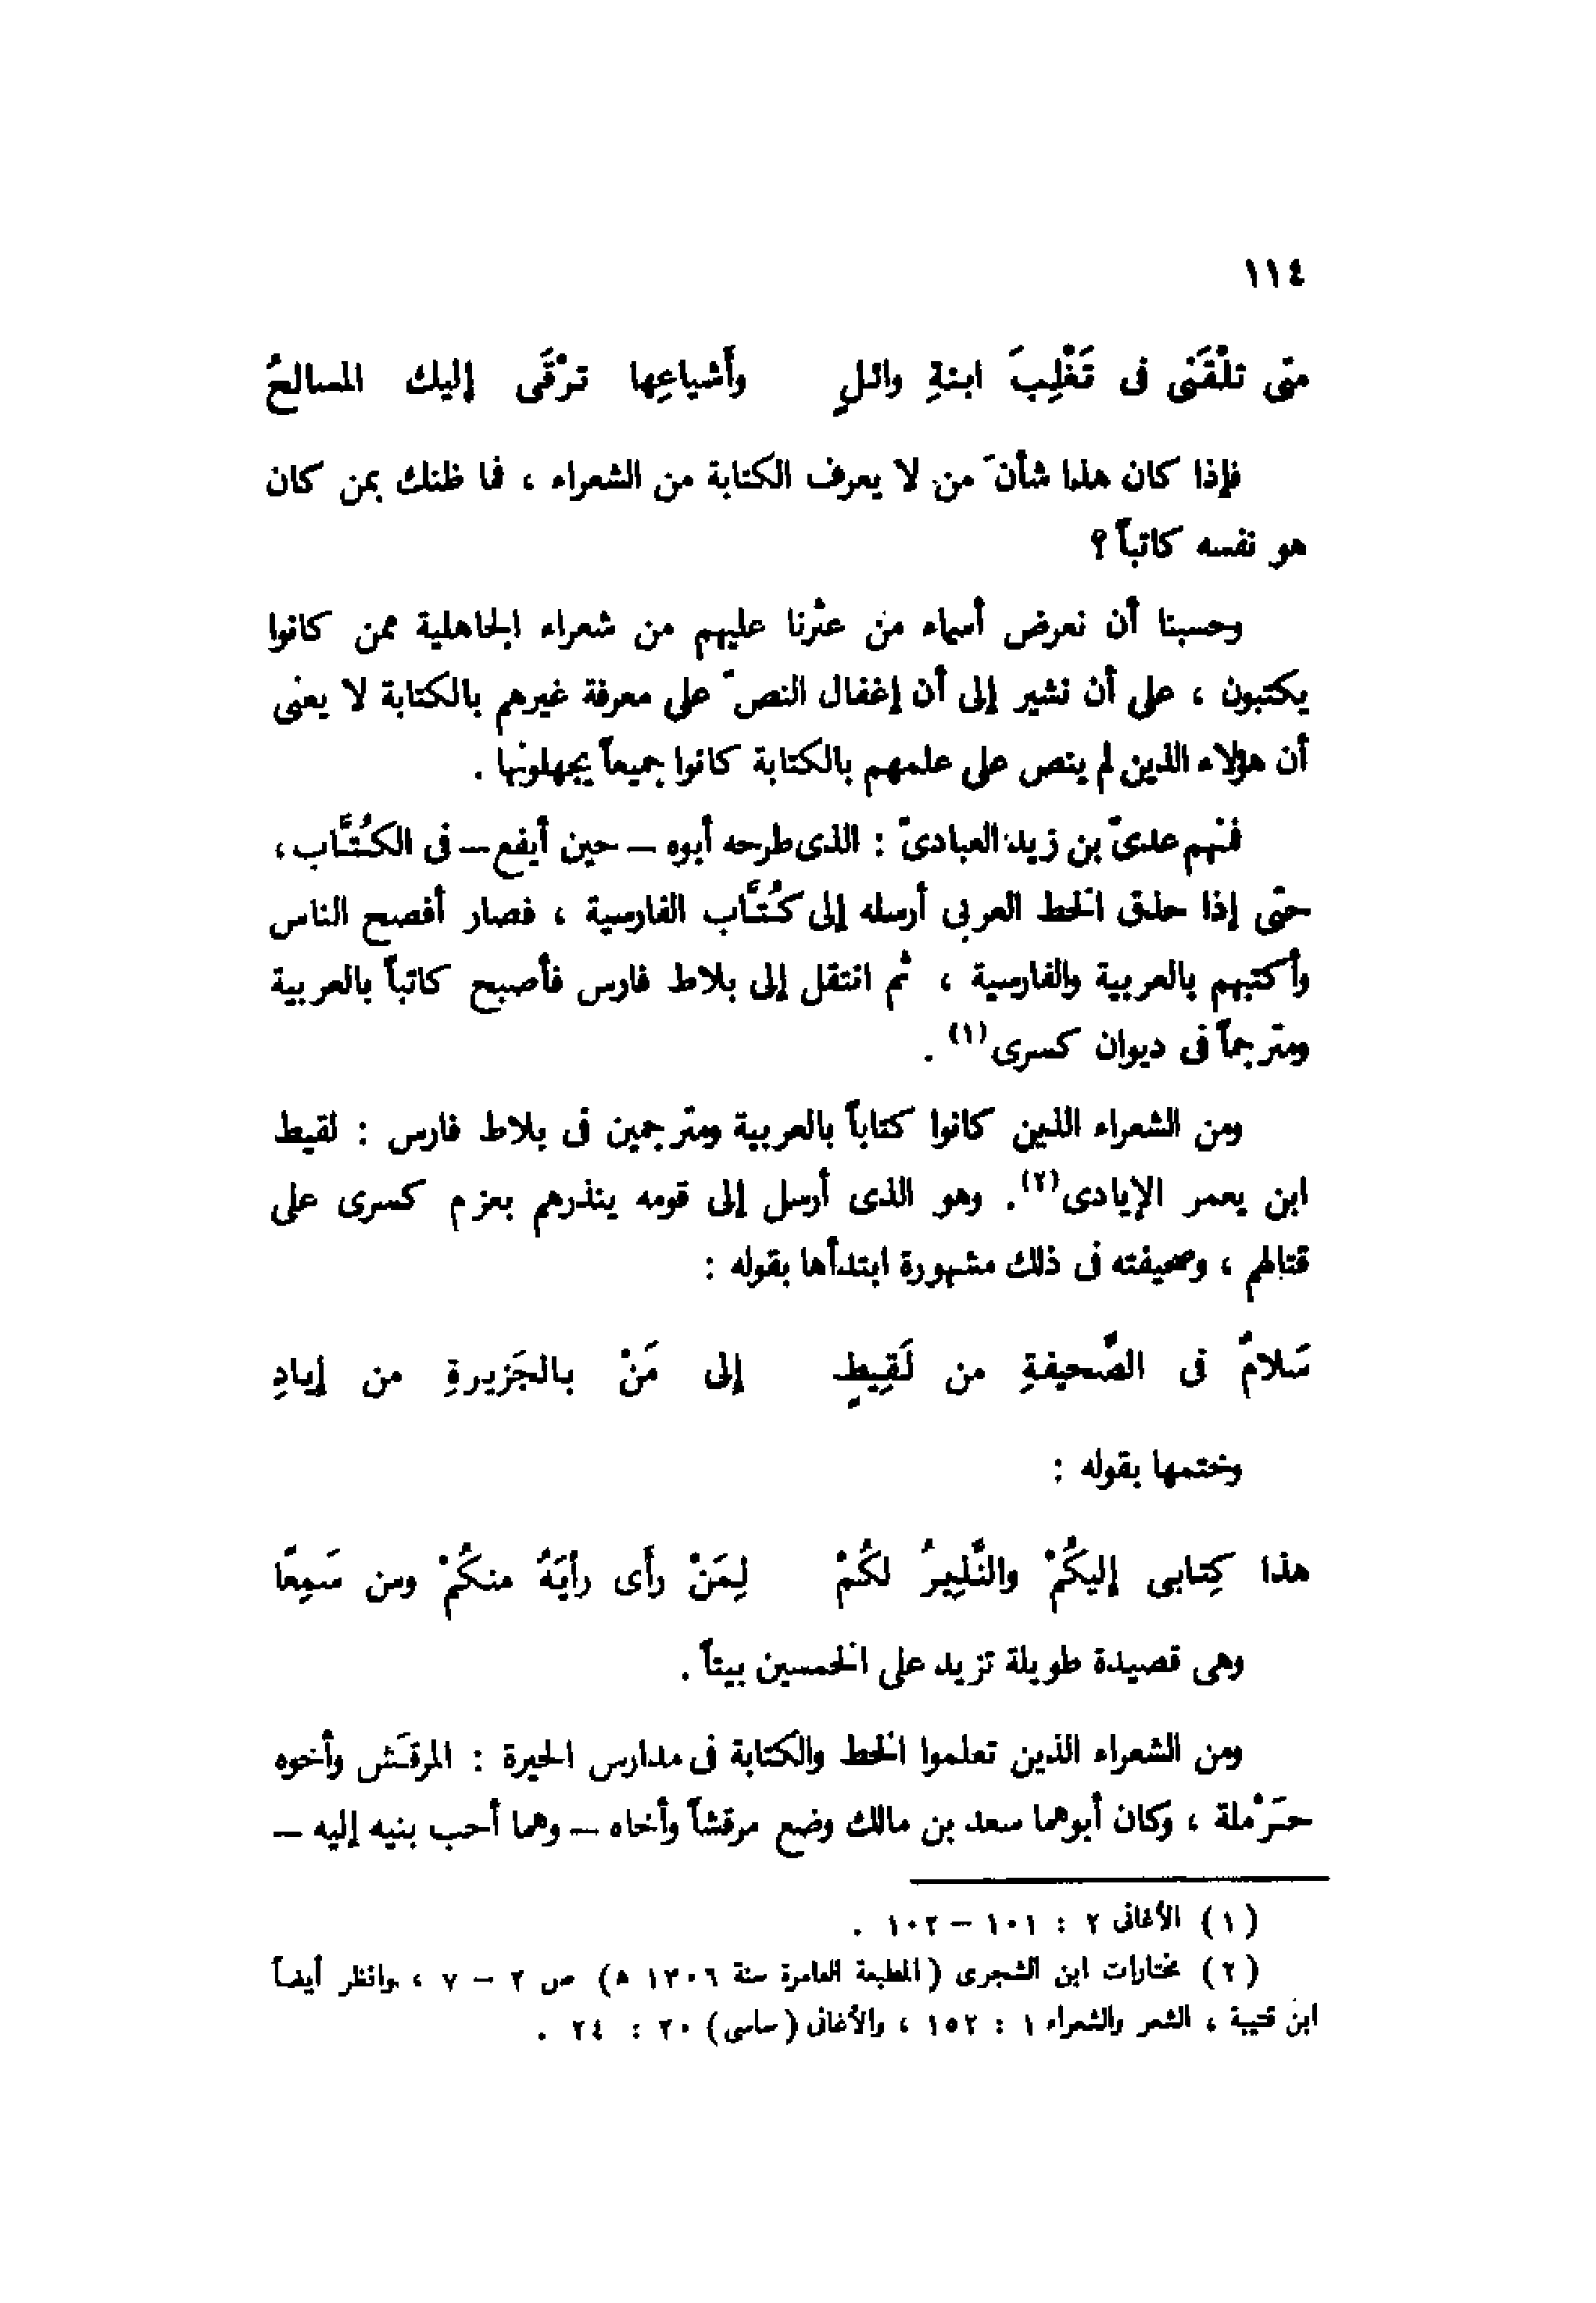 ١١٤
متى تلْقَنى فى تَغْلِبَ ابنةِ وائلٍ وأَشياعِها ترْقَى إليك المسالحُ
فإذا كان هذا شأنَ من لا يعرف الكتابة من الشعراء ، فما ظنك بمن كان
هو نفسه كاتباً ؟
وحسبنا أن نعرض أسماء من عثرنا عليهم من شعراء الجاهلية ممن كانوا
يكتبون ، على أن نشير إلى أن إغفال النصّ على معرفة غيرهم بالكتابة لا يعنى
أن هؤلاء الذين لم ينص على علمهم بالكتابة كانوا جميعاً يجهلونها .
فمنهم عدىّ بن زيد العبادىّ : الذى طرحه أبوه – حين أيفع – فى الكُتَّاب ،
حتى إذا حذق الخط العربى أرسله إلى كُتَّاب الفارسية ، فصار أفصح الناس
وأكتبهم بالعربية والفارسية ، ثم انتقل إلى بلاط فارس فأصبح كاتباً بالعربية
ومترجماً فى ديوان كسرى (١) .
ومن الشعراء الذين كانوا كتاباً بالعربية ومترجمين فى بلاط فارس : لقيط
ابن يعمر الإيادى (٢) . وهو الذى أرسل إلى قومه ينذرهم بعزم كسرى على
قتالهم ، وصحيفته فى ذلك مشهورة ابتدأها بقوله :
سَلامٌ فى الصَّحيفةِ من لَقِيطٍ إلى مَنْ بالجَزيرةِ من إيادِ
وختمها بقوله :
هذا كِتابى إليكُمْ والنَّذِيرُ لكُمْ لِمَنْ رأَى رأيَهُ منكُمْ ومن سَمِعَا
وهى قصيدة طويلة تزيد على الخمسين بيتاً .
ومن الشعراء الذين تعلموا الخط والكتابة فى مدارس الحيرة : المرقَّش وأخوه
حَرْملة ، وكان أبوهما سعد بن مالك وضع مرقشاً وأخاه – وهما أحب بنيه إليه –
(١) الأغانى ٢ : ١٠١ – ١٠٢ .
(٢) مختارات ابن الشجرى (المطبعة العامرة سنة ١٣٠٦ ه) ص ٢ – ٧ ، وانظر أيضاً
ابن قتيبة ، الشعر والشعراء ١ : ١٥٢ ، والأغانى (ساسى) ٢٠ : ٢٤ .